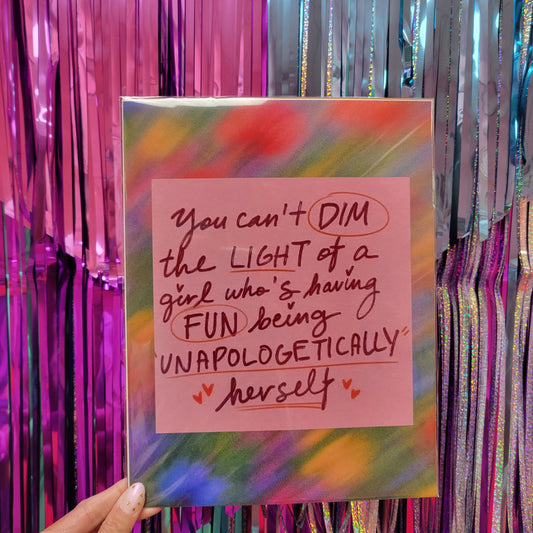 You can't DIM
the LIGHT of a
girl who's having
FUN being
"UNAPOLOGETICALLY"
herself